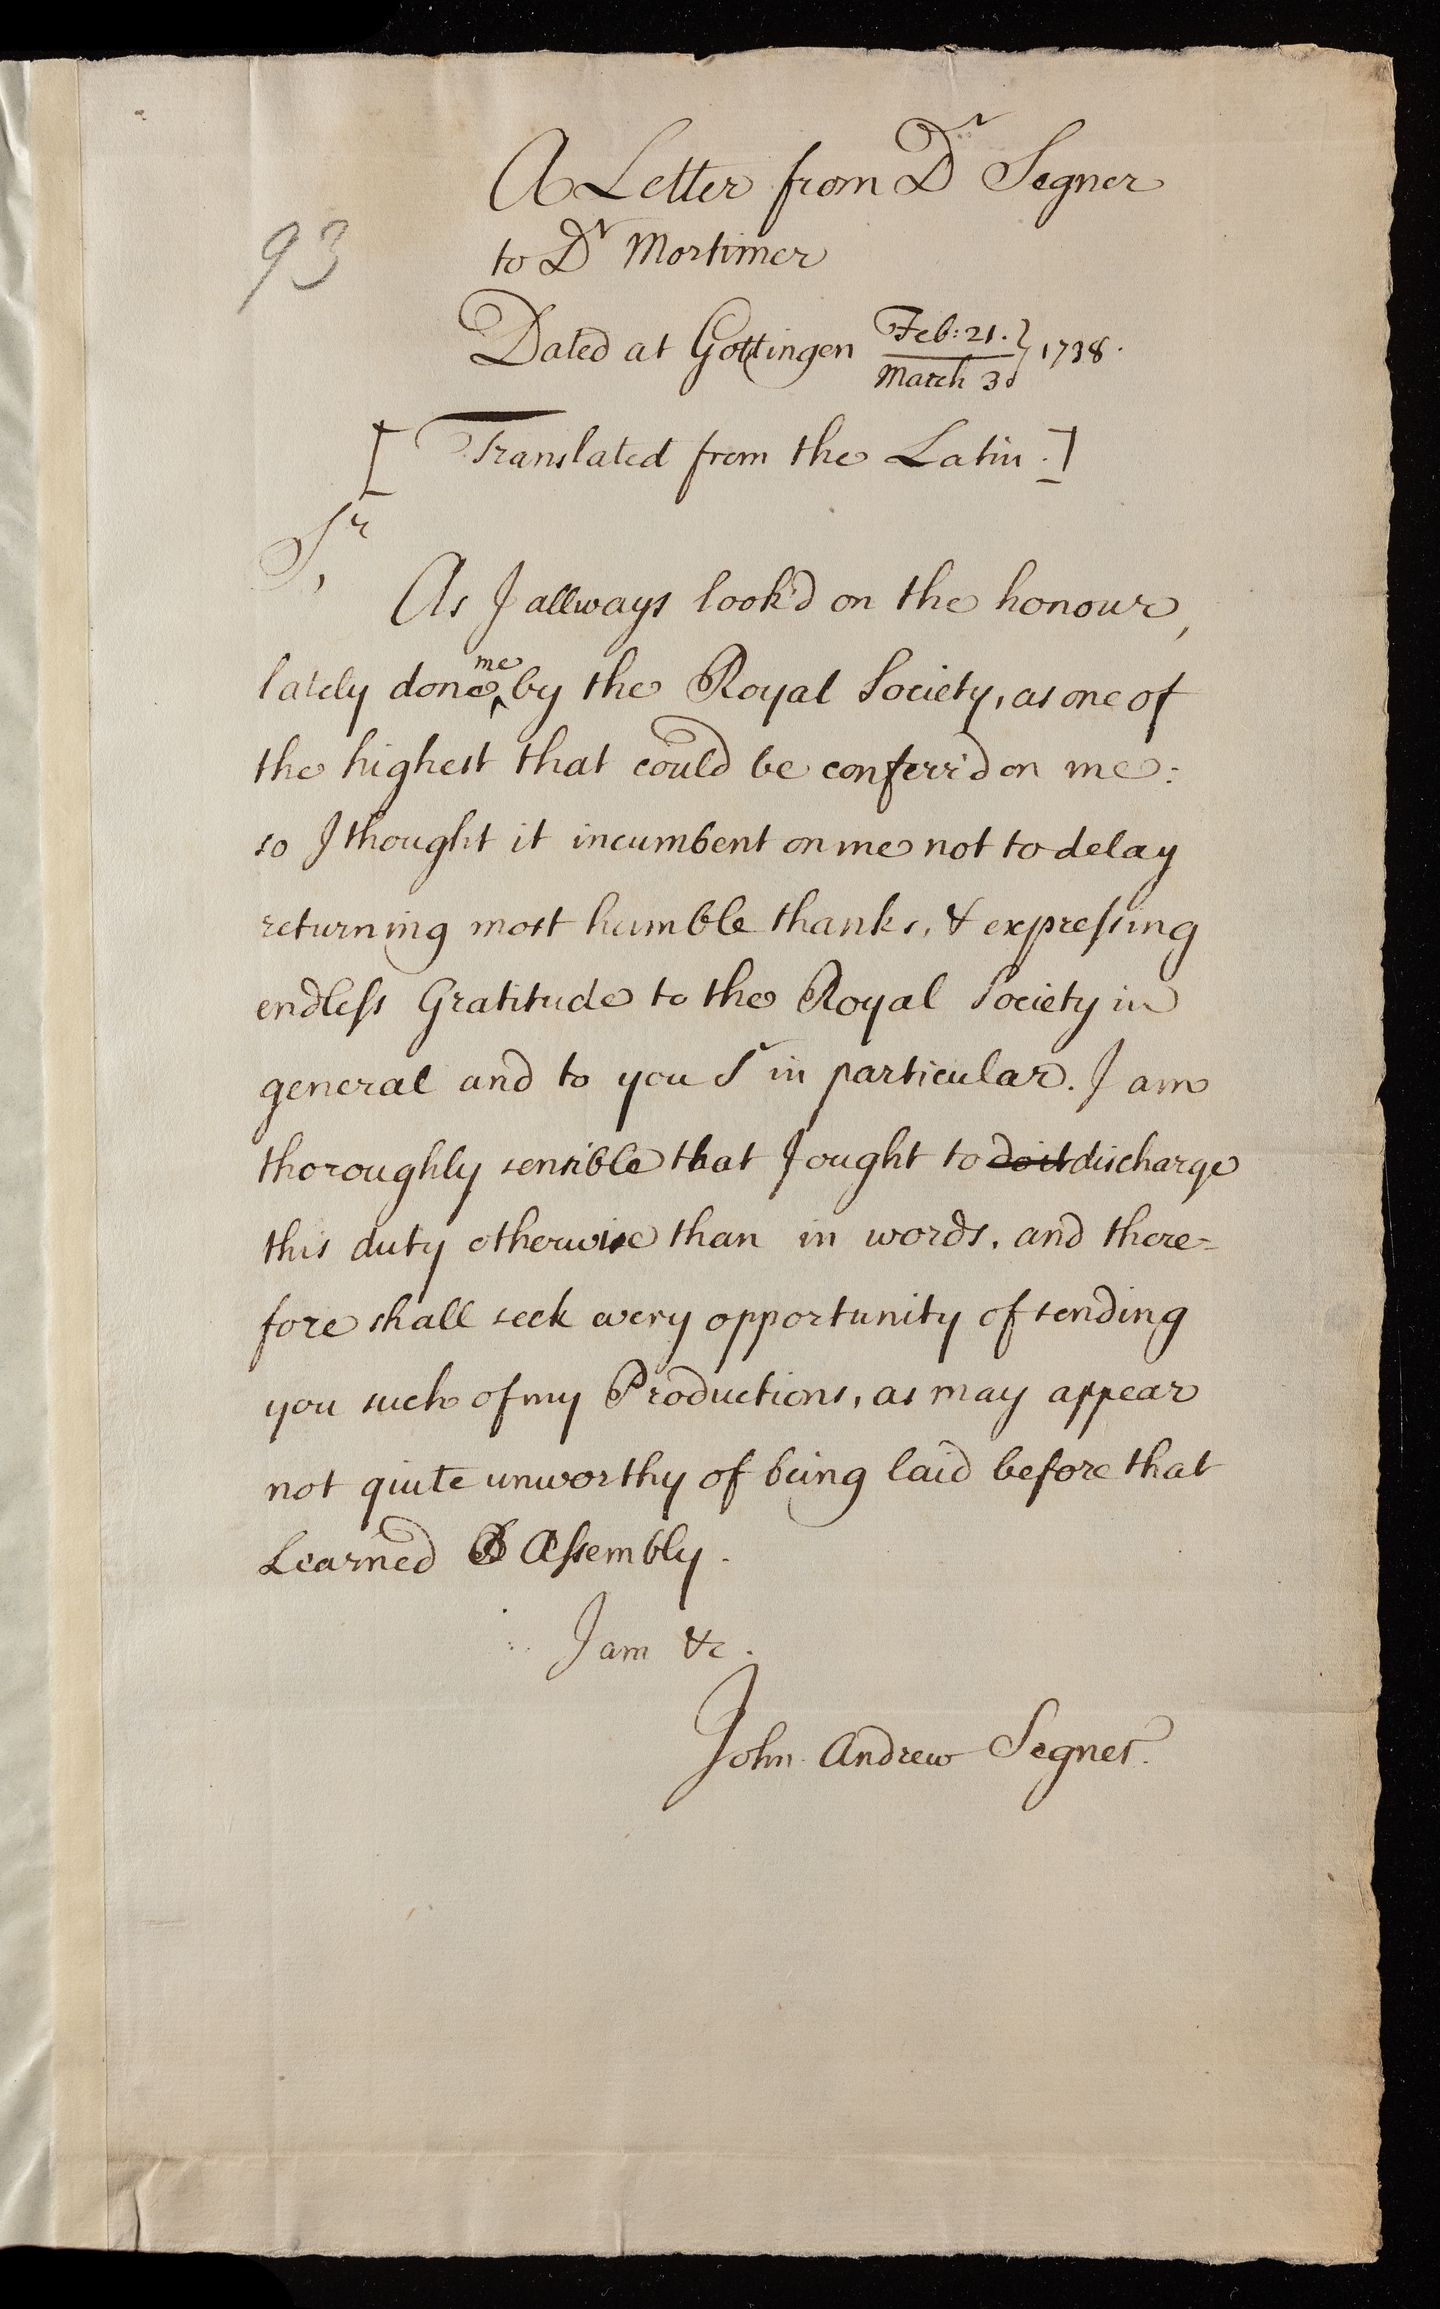 A Letter from Dr Segner
93
to Dr Mortimer
Dated at Gottingen Feb: 21. / March 3d } 1738.
[Translated from the Latin.]
Sr,
As I allways look'd on the honour,
lately done me by the Royal Society, as one of
the highest that could be conferr'd on me:
so I thought it incumbent on me not to delay
returning most humble thanks, & expressing
endless Gratitude to the Royal Society in
general and to you Sr in particular. I am
thoroughly sensible that I ought to do it discharge
this duty otherwise than in words, and there=
fore shall seek every opportunity of sending
you such of my Productions, as may appear
not quite unworthy of being laid before that
Learned Assembly.
I am &c.
John Andrew Segner.